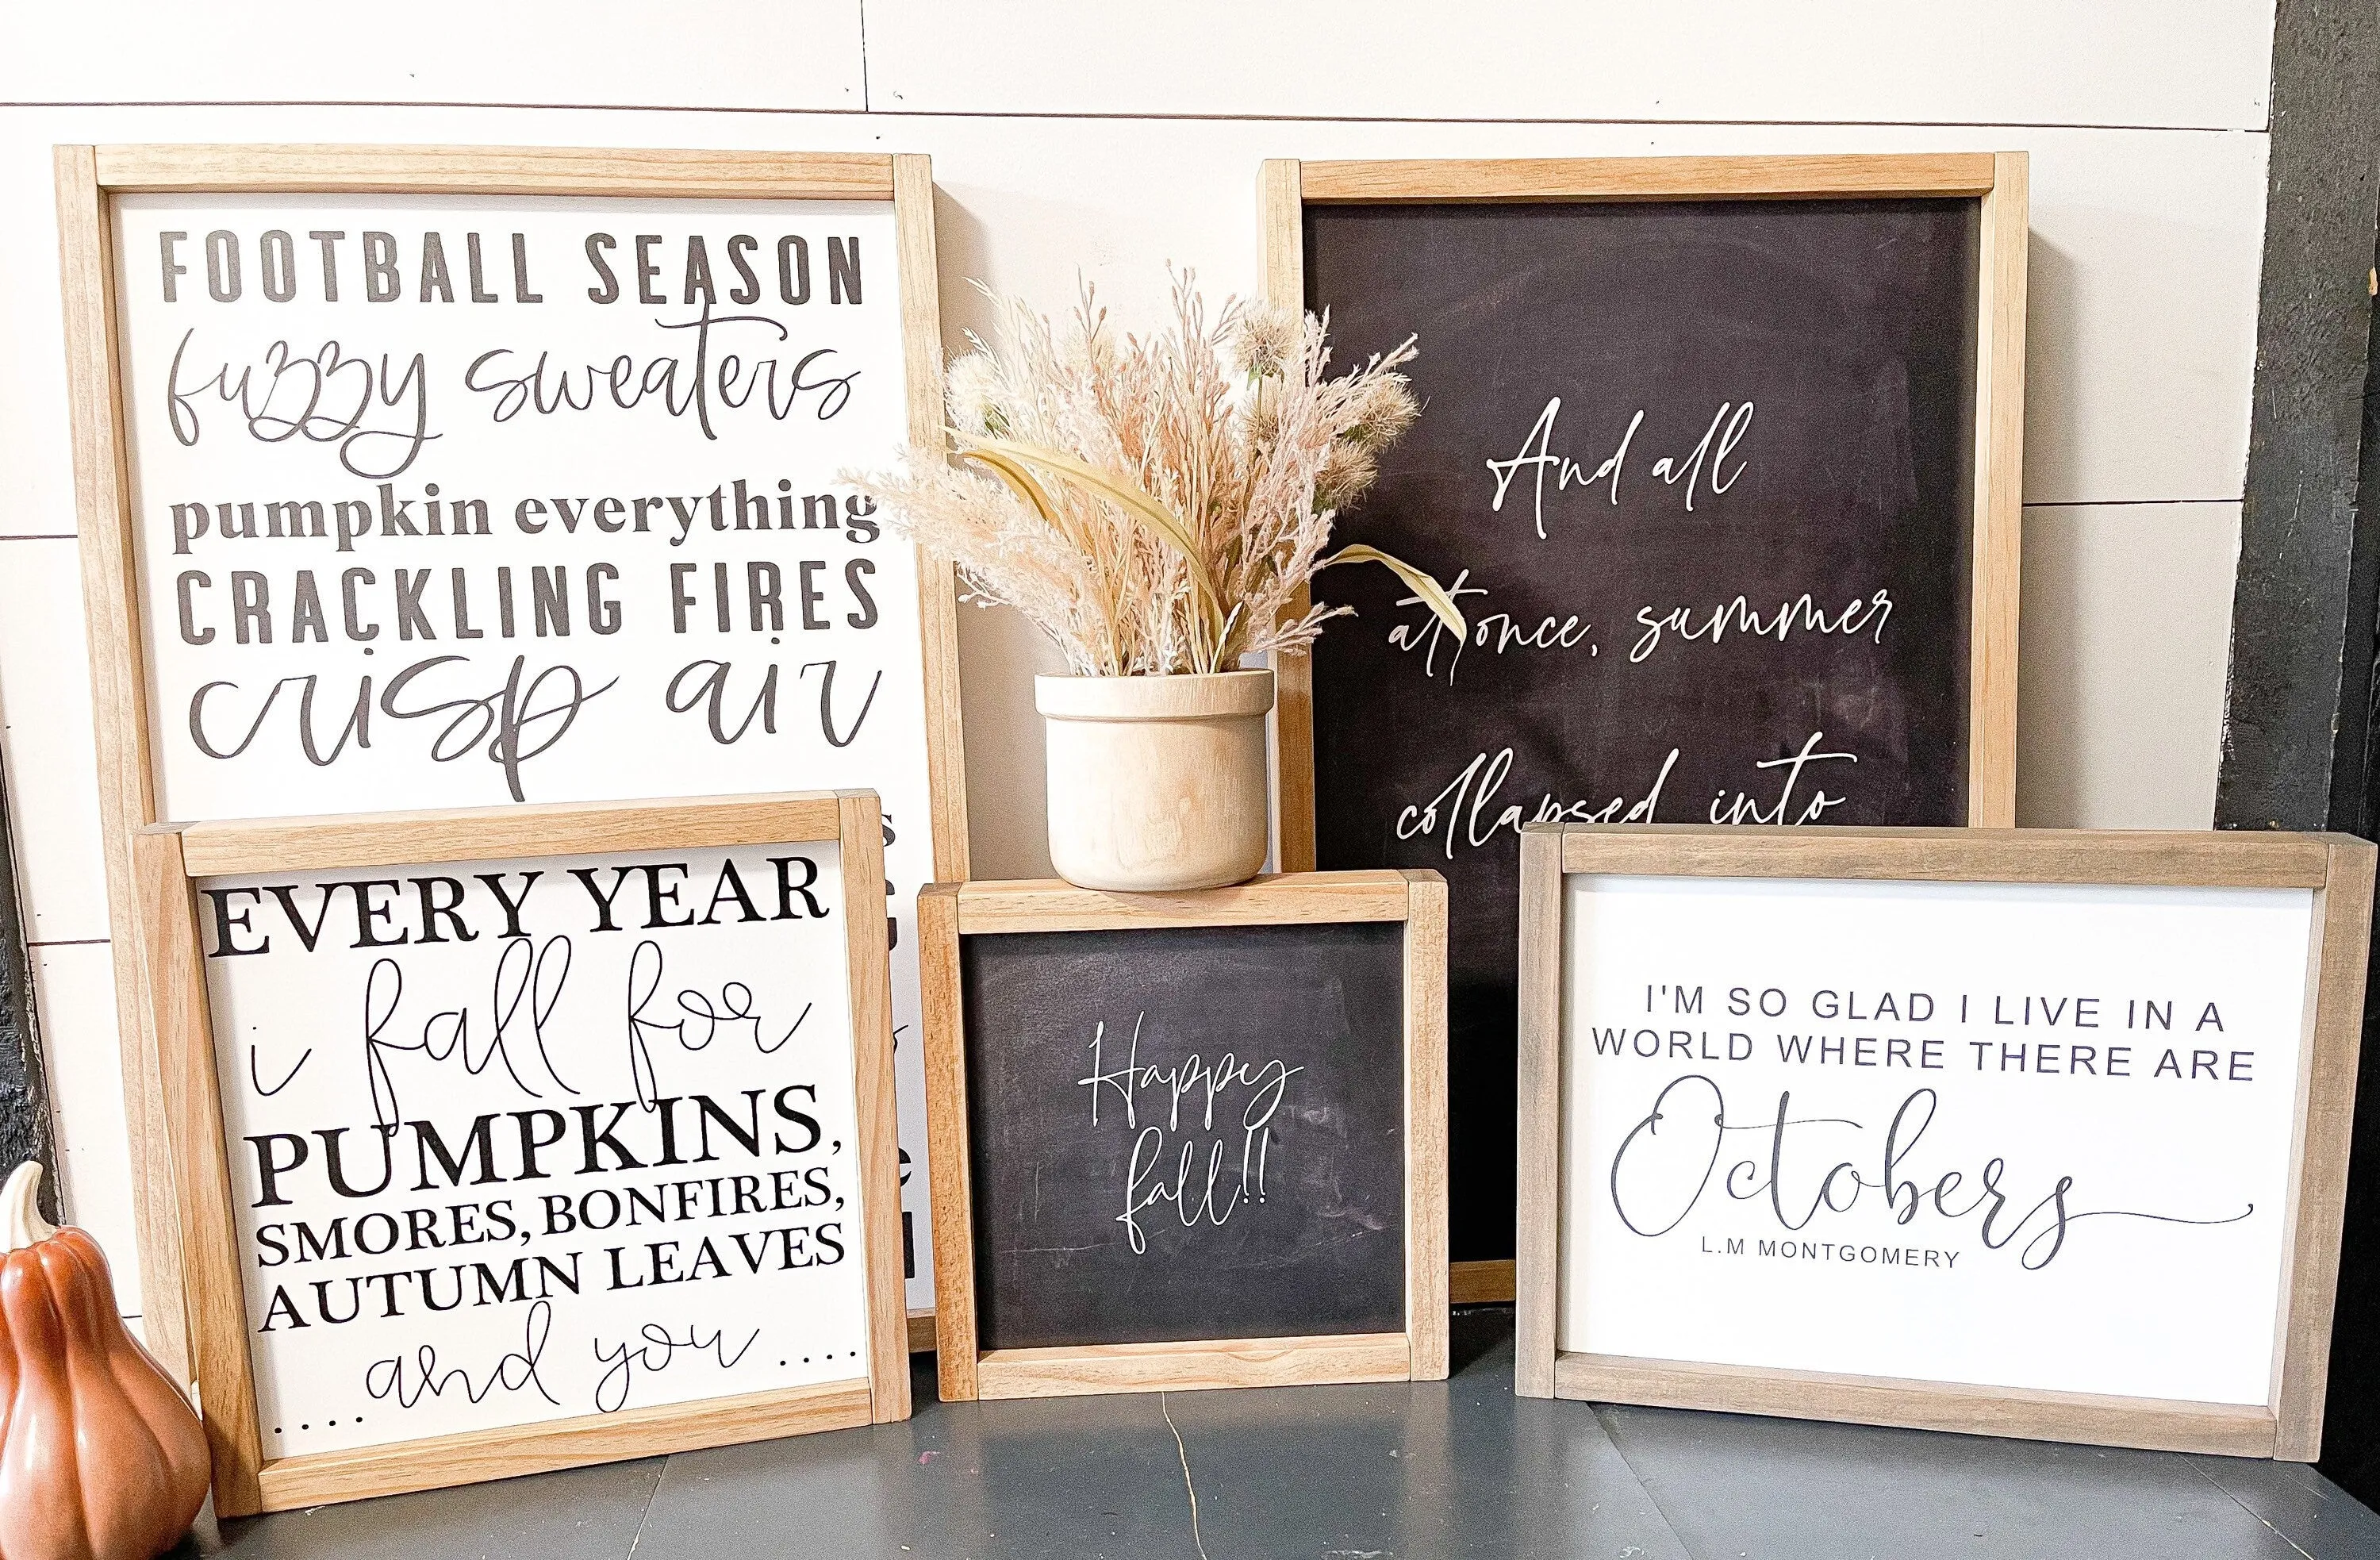 FOOTBALL SEASON
fuzzy sweaters
pumpkin everything
CRACKLING FIRES
crisp air
And all
at once, summer
collapsed into
EVERY YEAR
i fall for
PUMPKINS,
SMORES, BONFIRES,
AUTUMN LEAVES
....and you....
Happy
fall!!
I'M SO GLAD I LIVE IN A
WORLD WHERE THERE ARE
Octobers
L.M MONTGOMERY